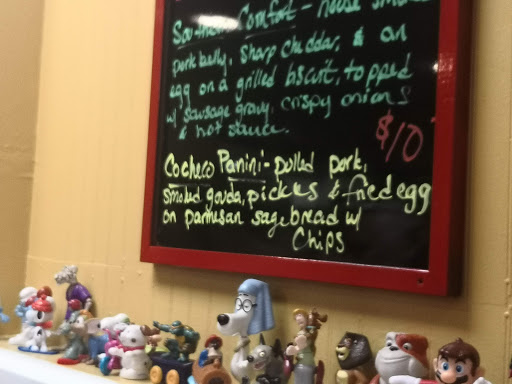 Southern Comfort - house smoked
pork belly, sharp cheddar, & an
egg on a grilled biscuit, topped
w/ sausage gravy, crispy onions
& hot sauce.
$10
Cocheco Panini - pulled pork,
smoked gouda, pickles & fried egg
on parmesan sage bread w/
Chips